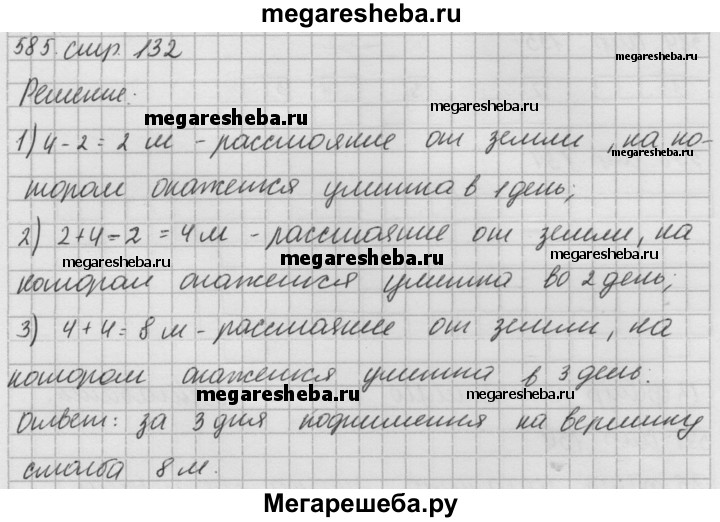 megaresheba.ru
585. стр. 132
megaresheba.ru
Решение:
megaresheba.ru
megaresheba.ru
1) 4 - 2 = 2 м - расстояние от земли, на ко-
megaresheba.ru
тором окажется улитка в 1 день;
2) 2 + 4 - 2 = 4 м - расстояние от земли, на
megaresheba.ru
megaresheba.ru
megaresheba.ru
котором окажется улитка во 2 день;
3) 4 + 4 = 8 м - расстояние от земли, на
котором окажется улитка в 3 день.
megaresheba.ru
megaresheba.ru
Ответ: за 3 дня поднимется на вершину
столба 8 м.
Мегарешеба.ру